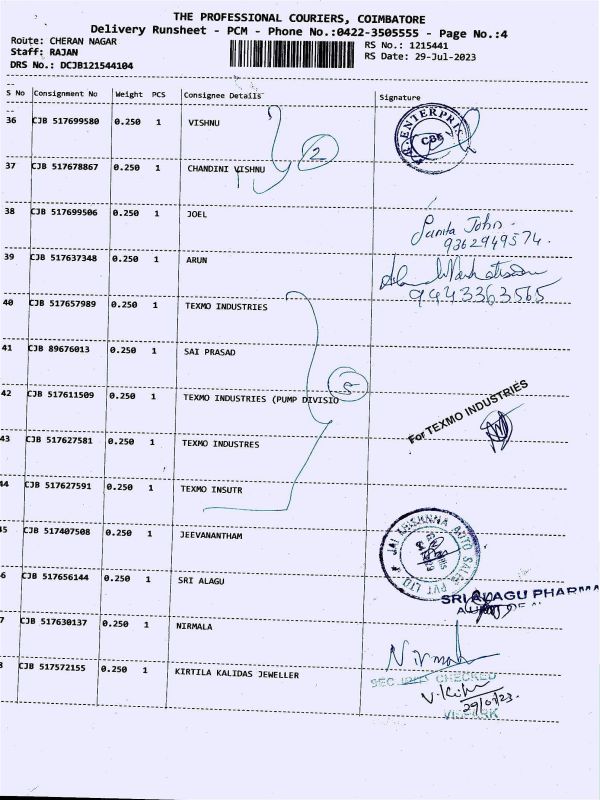 THE PROFESSIONAL COURIERS, COIMBATORE
Delivery Runsheet - PCM - Phone No.:0422-3505555 - Page No.:4
Route: CHERAN NAGAR
RS No.: 1215441
Staff: RAJAN
RS Date: 29-Jul-2023
DRS No.: DCJB121544104
S No Consignment No Weight PCS Consignee Details Signature
36 CJB 517699580 0.250 1 VISHNU
ENTERPRI
CBE
2
37 CJB 517678867 0.250 1 CHANDINI VISHNU
38 CJB 517699506 0.250 1 JOEL
Sunita John.
9362949574.
39 CJB 517637348 0.250 1 ARUN
9443363565
40 CJB 517657989 0.250 1 TEXMO INDUSTRIES
41 CJB 89676013 0.250 1 SAI PRASAD
5
42 CJB 517611509 0.250 1 TEXMO INDUSTRIES (PUMP DIVISIO
For TEXMO INDUSTRIES
43 CJB 517627581 0.250 1 TEXMO INDUSTRES
44 CJB 517627591 0.250 1 TEXMO INSUTR
45 CJB 517407508 0.250 1 JEEVANANTHAM
JAI KRISHNAA AUTO SALES PVT LTD
46 CJB 517656144 0.250 1 SRI ALAGU
SRI ALAGU PHARMA
7 CJB 517630137 0.250 1 NIRMALA
Nirmala
8 CJB 517572155 0.250 1 KIRTILA KALIDAS JEWELLER
CHECKED
29/07/23.